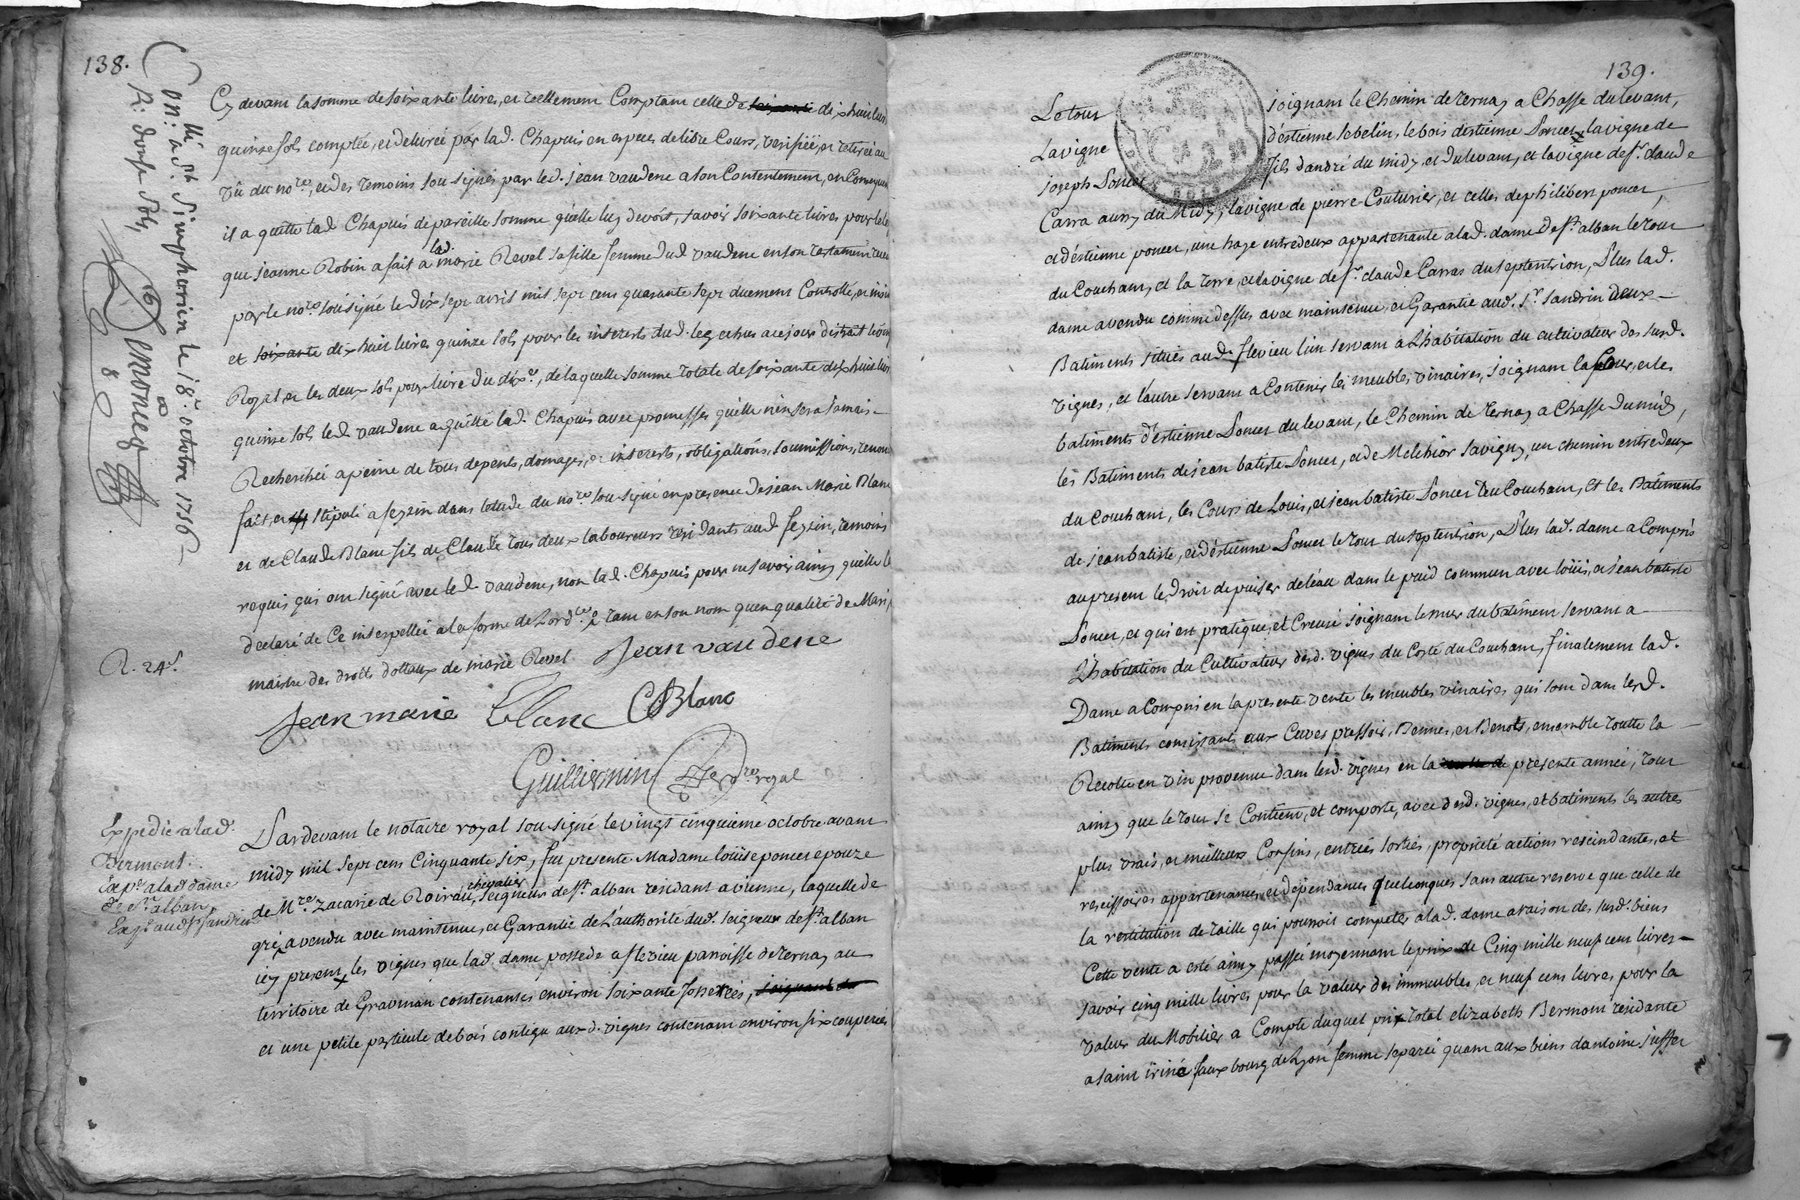 138.
Con: lle a St. Simphorin le 18e. octobre 1756
R: douse sols
Demonceq
Cy devant la somme de soixante livres, et reellement Comptant celle de dixhuit livres
quinze sols comptée, et delivrée par lad. Chapuis en especes de libre Cours, verifiée, et retirée au
vû du nore., et des temoins sousignés par led. jean vaudene a son Contentement, en Consequence
il a quitté lad. Chapuis de pareille somme quelle luy devoit, savoir soixante livres pour le leg
que jeanne Robin a fait a lad. marie Revel sa fille femme dud. vaudene en son testament receu
par le nore. sousigné le dix sept avril mil sept cens quarante sept duement Controllé, et insinué
et soixante dixhuit livres quinze sols pour les interests dud. leg echus a ce jour distrait le dixe
Royal, et les deux sols pour livre du dixe., de laquelle somme totale de soixante dixhuit livres
quinze sols led. vaudene a quitté lad. Chapuis avec promesses quelle n'en sera jamais
Recherchée a peine de tous depents, domages, et interests, obligations, soumissions, renon
fait, et stipulé a fezin dans letude du nore. sousigné en presence de jean Marie Blanc
et de Claude Blanc fils de Claude tous deux laboureurs residants aud. fezin, temoins
requis qui ont signé avec led. vaudene, non lad. Chapuis pour ne savoir ainsy quelle l'a
declaré de Ce interpellée a la forme de Lordce. & tant en son nom quen qualité de Mari,
maistre des droits dotaux de marie Revel.
R. 24s.
jean vaudene
jean marie blanc CBlanc
Guilliermin nore royal
Expedié a lad.
Bermont.
Expé. a lad. dame
de St. alban
Expé. aud. Sr. Sandrin
Pardevant le notaire royal sousigné le vingt cinquieme octobre avant
midy mil sept cens Cinquante six, fut presente Madame loüise poncet epouze
de Mre. zacarie de Roirau, chevalier, Seigneur de St. alban residant a vienne, laquelle de
gré a vendu avec maintenue, et Garantie de L'authorité dud. seigneur de St. alban
icy present, les vignes que lad. dame possede a flevieu parroisse de ternay au
territoire de Gravinan contenantes environ soixante fosserées,
et une petite particule de bois contigu auxd. vignes contenant environ six couperées
139.
Le tout joignant le Chemin de ternay a Chasse du levant,
La vigne d'estienne sebelin, le bois d'estienne Poncet, la vigne de
joseph Poncet fils d'andré du midy, et du levant, et la vigne de Sr. claude
Carra aussy du Midy, la vigne de pierre Couturier, et celles de philibert poncet,
et d'estienne poncet, une haye entredeux appartenante a lad. dame de St. alban le tout
du Couchant, et la terre, et la vigne de Sr. claude Carras du septentrion, Plus lad.
dame a vendu comme dessus avec maintenue, et Garantie aud. Sr. Sandrin deux
Batiments situés aud. flevieu l'un servant à L'habitation du cultivateur des susd.
vignes, et l'autre servant a Contenir les meubles, vinaires, joignant la Cour, et les
batiments d'estienne Poncet du levant, le Chemin de ternay a Chasse du midy,
les Batiments de jean batiste Poncet, et de Melchior Savigny, un chemin entredeux
du Couchant, les Cours de Louis, et jean batiste Poncet du Couchant, et les Batiments
de jean batiste, et d'estienne Poncet le tout du septentrion, Plus lad. dame a Compris
au present le Droit de puiser de léau dans le puid commun avec loüis, et jean batiste
Poncet, et qui est pratiqué, et Creusé joignant le mur du batiment servant a
L'habitation du Cultivateur desd. vignes du Costé du Couchant, finalement lad.
Dame a Compris en la presente vente les meubles vinaires qui sont dans lesd.
Batiments consistants aux Cuves pressoir, Bennes, et Benots, ensemble toutte la
Recolte en vin provenue dans lesd. vignes en la presente année, tout
ainsy que le tout se Contient, et comporte, avec desd. vignes, et batiments les autres
plus vrais, et meilleurs Confins, entrées, sorties, proprieté actions rescindantes, et
rescissoires, appartenances, et dependances quelconques sans autre reserve que celle de
la restitution de taille qui pourroit competer a lad. dame a raison des susd. biens
Cette vente a esté ainsy passée moyennant le prix de Cinq mille neuf cent livres
savoir cinq mille livres pour la valeur des immeubles, et neuf cens livres pour la
valeur du Mobilier a Compte duquel prix total elizabeth Bermont residante
a saint irinée faux bourg de Lyon femme separée quant aux biens d'antoine siffet